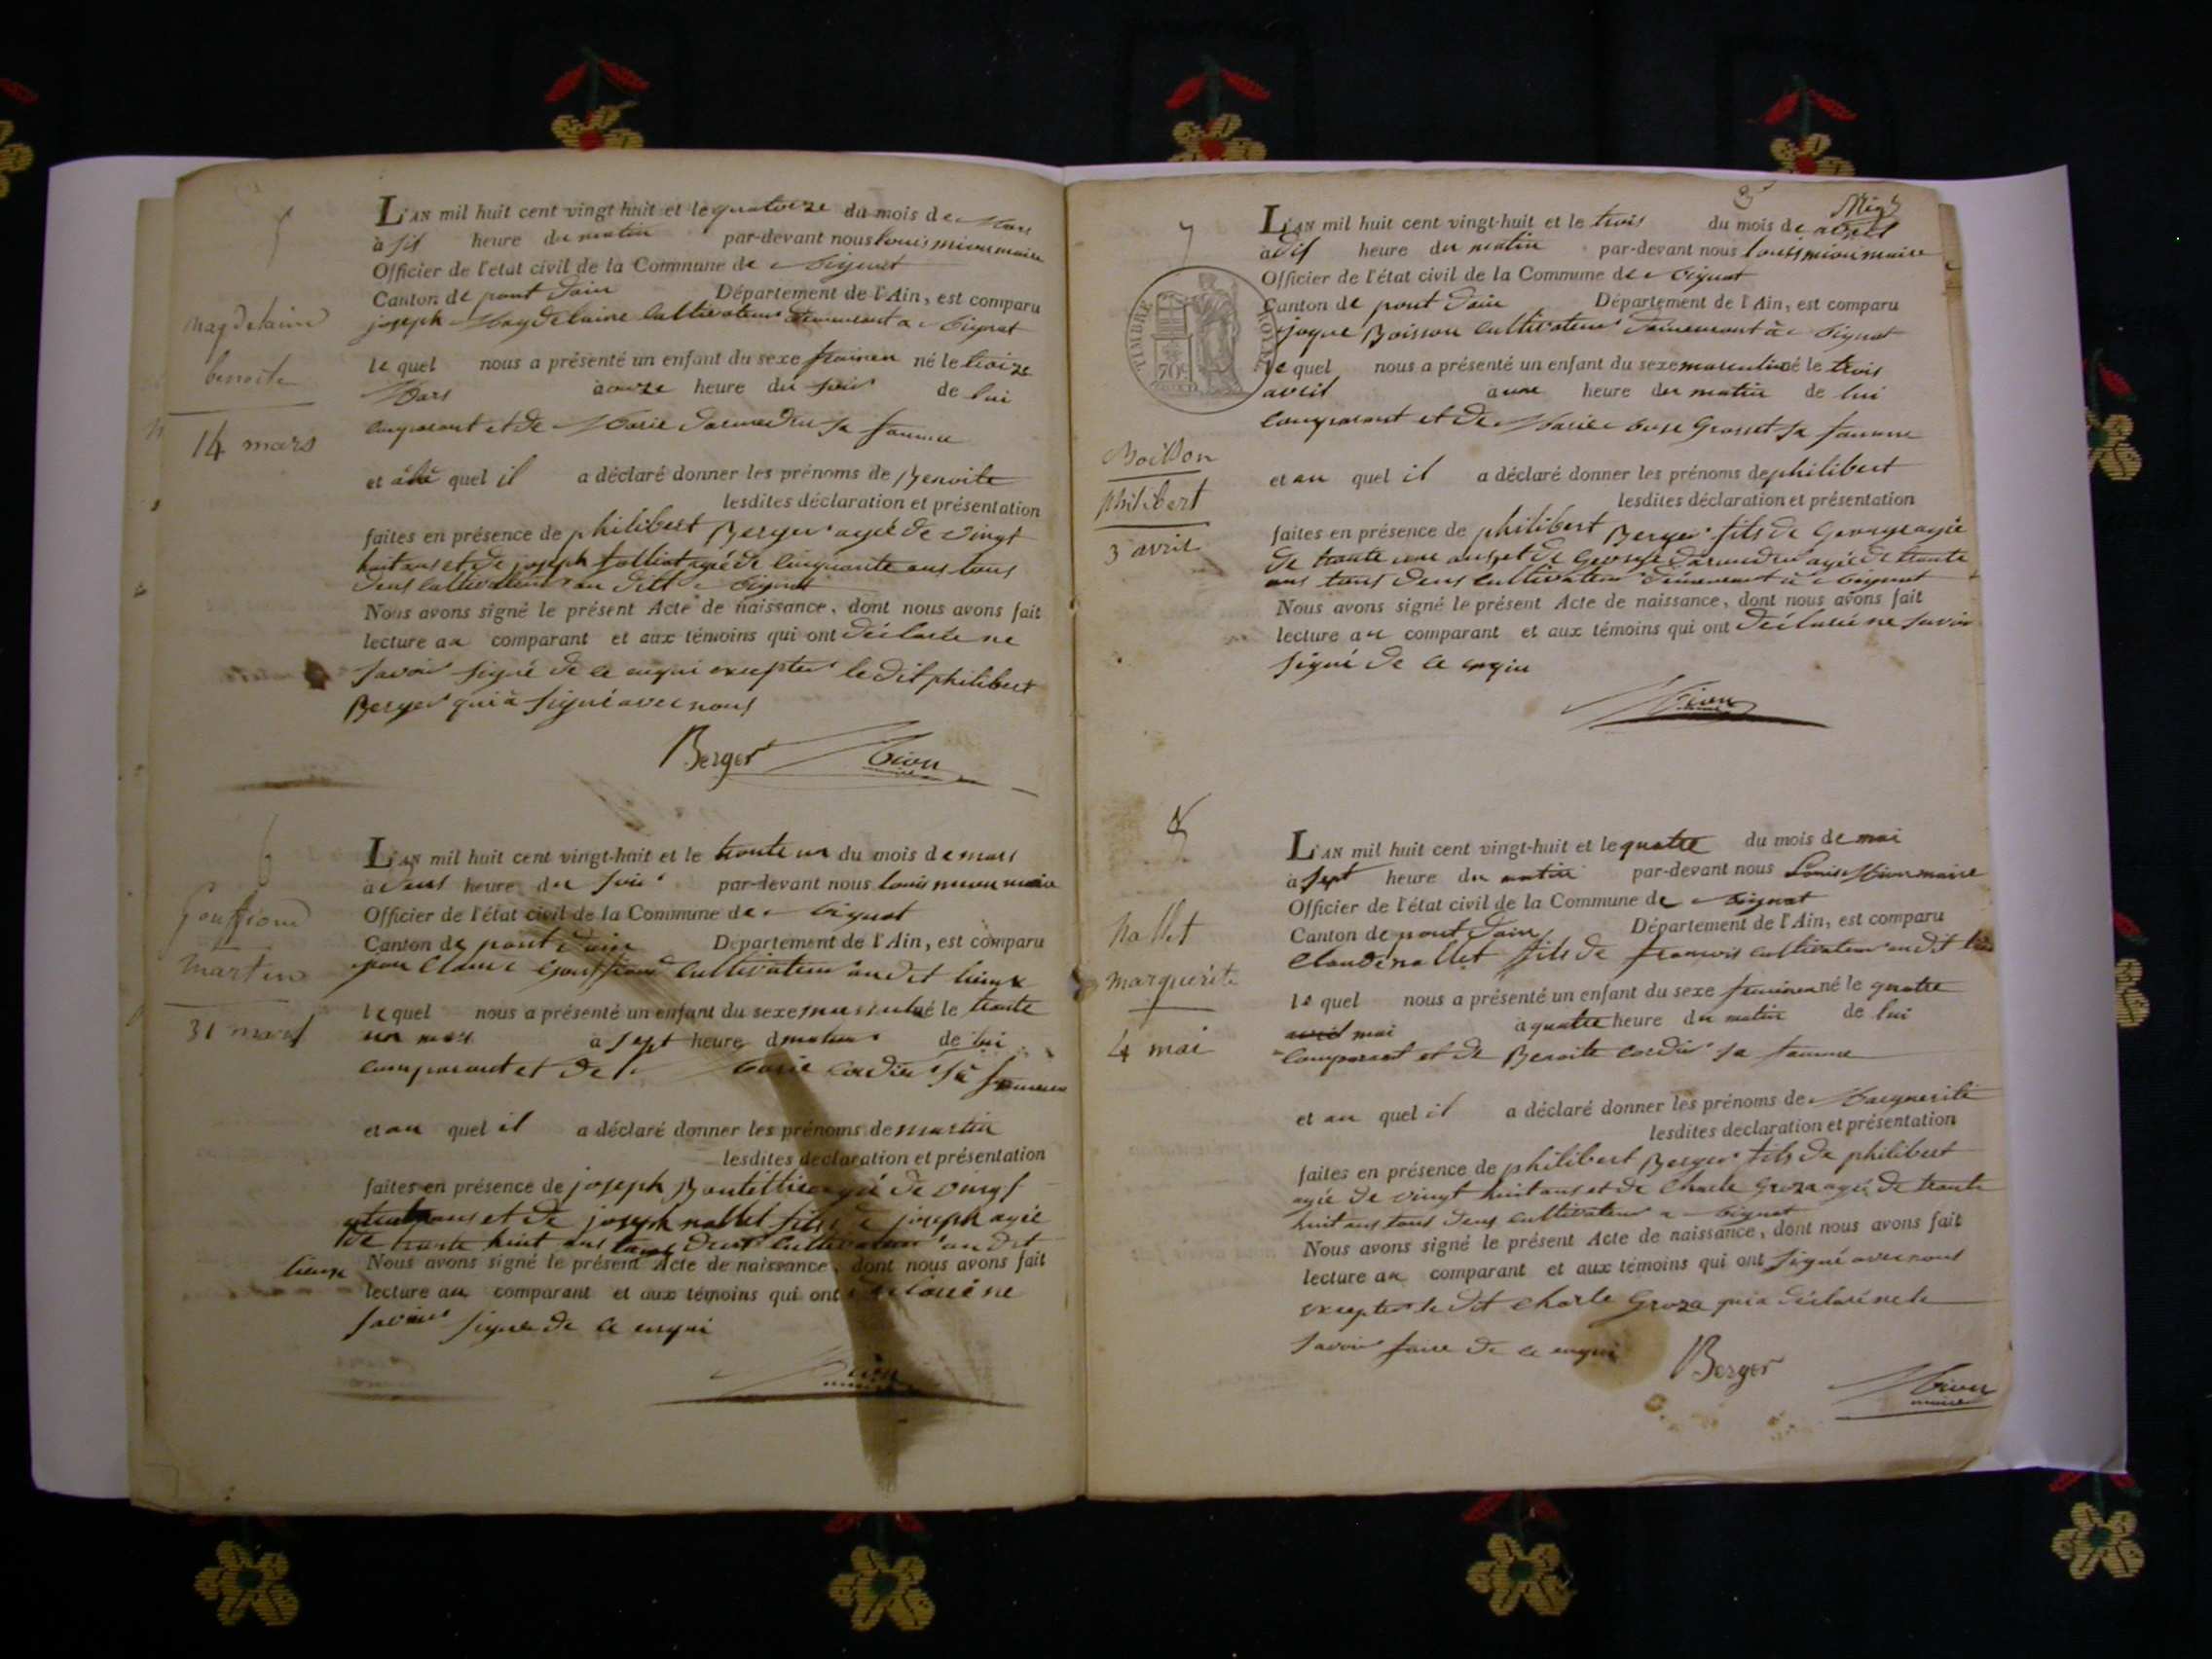 5
L'AN mil huit cent vingt-huit et le quatorze du mois de Mars
à heure du matin par-devant nous louis mion maire
Officier de l'état civil de la Commune de
Canton de pont Dain Département de l'Ain, est comparu
joseph Magdelaine Cultivateur a
le quel nous a présenté un enfant du sexe né le treize
Mars à onze heure du soir de lui
comparant et de Marie sa famme
et quel il a déclaré donner les prénoms de Benoite
lesdites déclaration et présentation
faites en présence de philibert Berger agié de vingt
huit ans et de joseph agié de cinquante ans tous
deus cultivateurs au dit
Nous avons signé le présent Acte de naissance, dont nous avons fait
lecture au comparant et aux témoins qui ont déclaré ne
savoir signé de ce enqui excepter le dit philibert
Berger qui a signé avec nous
Berger Mion
maire
Magdelaine
benoite
14 mars
6
L'AN mil huit cent vingt-huit et le trente un du mois de mars
à deus heure du soir par-devant nous louis mion maire
Officier de l'état civil de la Commune de
Canton de pont Dain Département de l'Ain, est comparu
Claude cultivateur au dit lieux
le quel nous a présenté un enfant du sexe né le trente
un mars à sept heure d matin de lui
comparant et de Marie cordier sa
et au quel il a déclaré donner les prénoms de martin
lesdites declaration et présentation
faites en présence de joseph agié de vingt
ans et de joseph nallet fils de joseph agié
de trante huit ans tous deus cultivateur au dit
lieux Nous avons signé le présent Acte de naissance, dont nous avons fait
lecture au comparant et aux témoins qui ont déclaré ne
savoir signer de ce enqui
Mion
maire
martin
31 mars
3
7
L'AN mil huit cent vingt-huit et le trois du mois de avril
à dis heure du matin par-devant nous louis mion maire
Officier de l'état civil de la Commune de
Canton de pont Dain Département de l'Ain, est comparu
Boisson cultivateur à
le quel nous a présenté un enfant du sexe masculin né le trois
avril à une heure du matin de lui
comparant et de Marie Grosset sa famme
et au quel il a déclaré donner les prénoms de philibert
lesdites déclaration et présentation
faites en présence de philibert Berger fils de George agié
de trante une ans et de George agié de trante
ans tous deus cultivateur à
Nous avons signé le présent Acte de naissance, dont nous avons fait
lecture au comparant et aux témoins qui ont déclaré ne savoir
signé de ce enqui
Mion
maire
TIMBRE ROYAL
70c
Boisson
philibert
3 avril
8
L'AN mil huit cent vingt-huit et le quatre du mois de mai
à sept heure du matin par-devant nous Louis Mion maire
Officier de l'état civil de la Commune de
Canton de pont Dain Département de l'Ain, est comparu
Claude nallet fils de francois cultivateur au dit lieu
le quel nous a présenté un enfant du sexe né le quatre
avril mai à quatre heure du matin de lui
comparant et de Benoite cordier sa famme
et au quel il a déclaré donner les prénoms de Marguerite
lesdites declaration et présentation
faites en présence de philibert Berger fils de philibert
agié de vingt huit ans et de Charle Groza agié de trante
huit ans tous deus cultivateur a
Nous avons signé le présent Acte de naissance, dont nous avons fait
lecture au comparant et aux témoins qui ont signé avec nous
excepter le dit Charle Groza qui a déclaré ne le
savoir faire de ce enqui
Berger
Mion
maire
Nallet
marguerite
4 mai